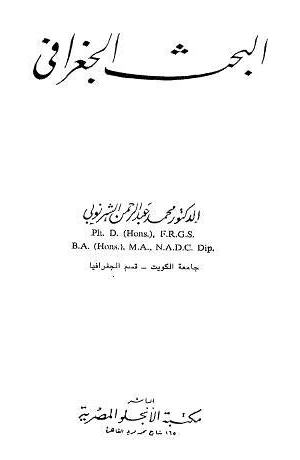 البحث الجغرافى
الدكتور محمد عبد الرحمن الشرنوبى
Ph. D. (Hons.), F.R.G.S.
B.A. (Hons.), M.A., N.A.D.C. Dip.
جامعة الكويت - قسم الجغرافيا
الناشر
مكتبة الأنجلو المصرية
١٦٥ شارع محمد فريد القاهرة